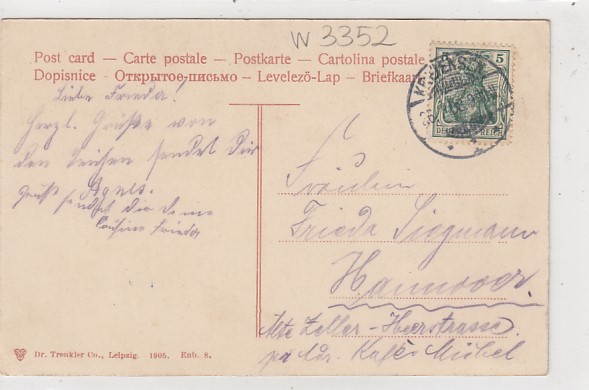 W 3352
Post card — Carte postale — Postkarte — Cartolina postale
Dopisnice - Открытое-письмо - Levelező-Lap - Briefkaart
5
DEUTSCHES REICH
Liebe Frieda!
Herzl. Grüße von
den sendet Dir
Agnes.
Gruß sendet die Deine
Cousine Frieda
Fräulein
Frieda Siegmann
Hannover.
Alte Celler-Heerstrasse.
Dr. Trenkler Co., Leipzig. 1905. Enb. 8.